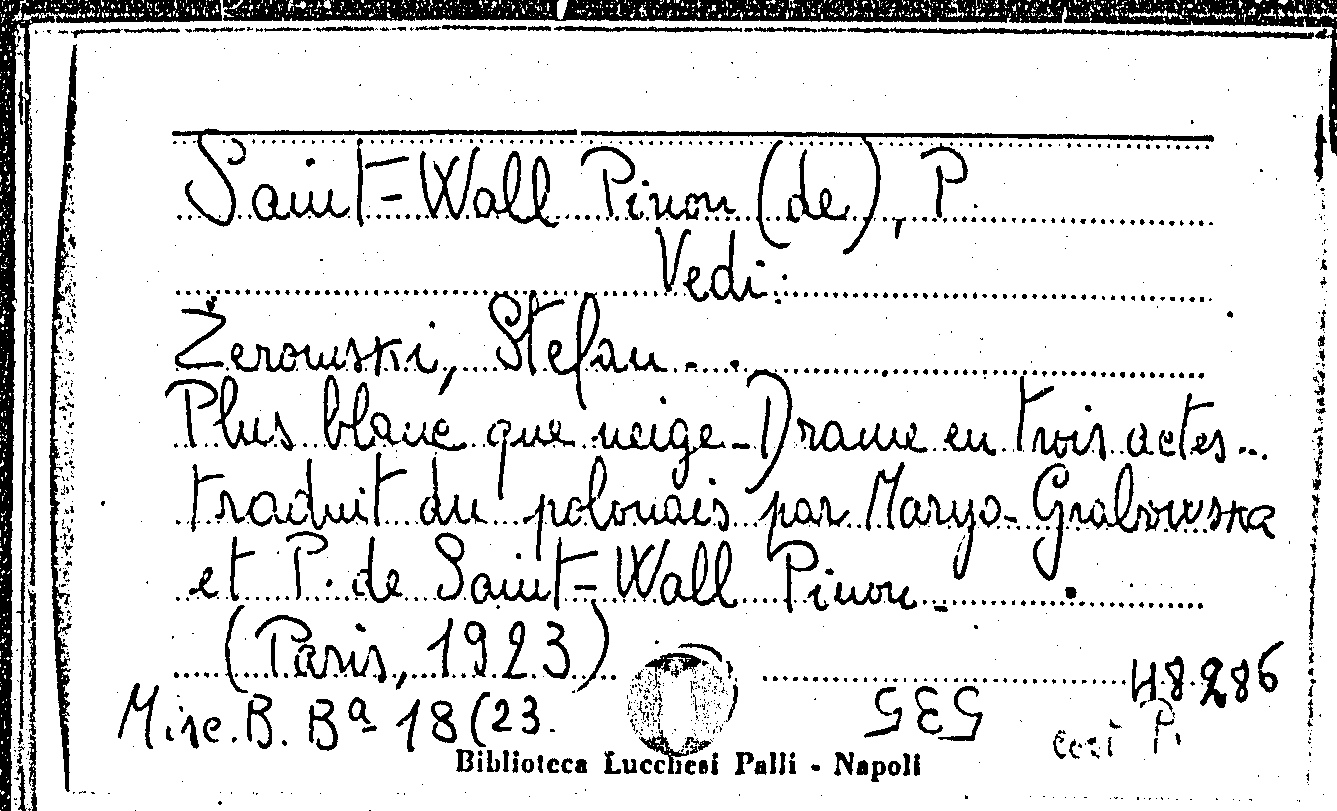 Saint-Wall Pinon (de), P.
Vedi:
Żerowski, Stefan...
Plus blanc que neige - Drame en trois actes...
traduit du polonais par Maryo-Grabowska
et P. de Saint-Wall Pinon.
(Paris, 1923)
48286
Misc. B. Bª 18(23.
535
Biblioteca Lucchesi Palli - Napoli